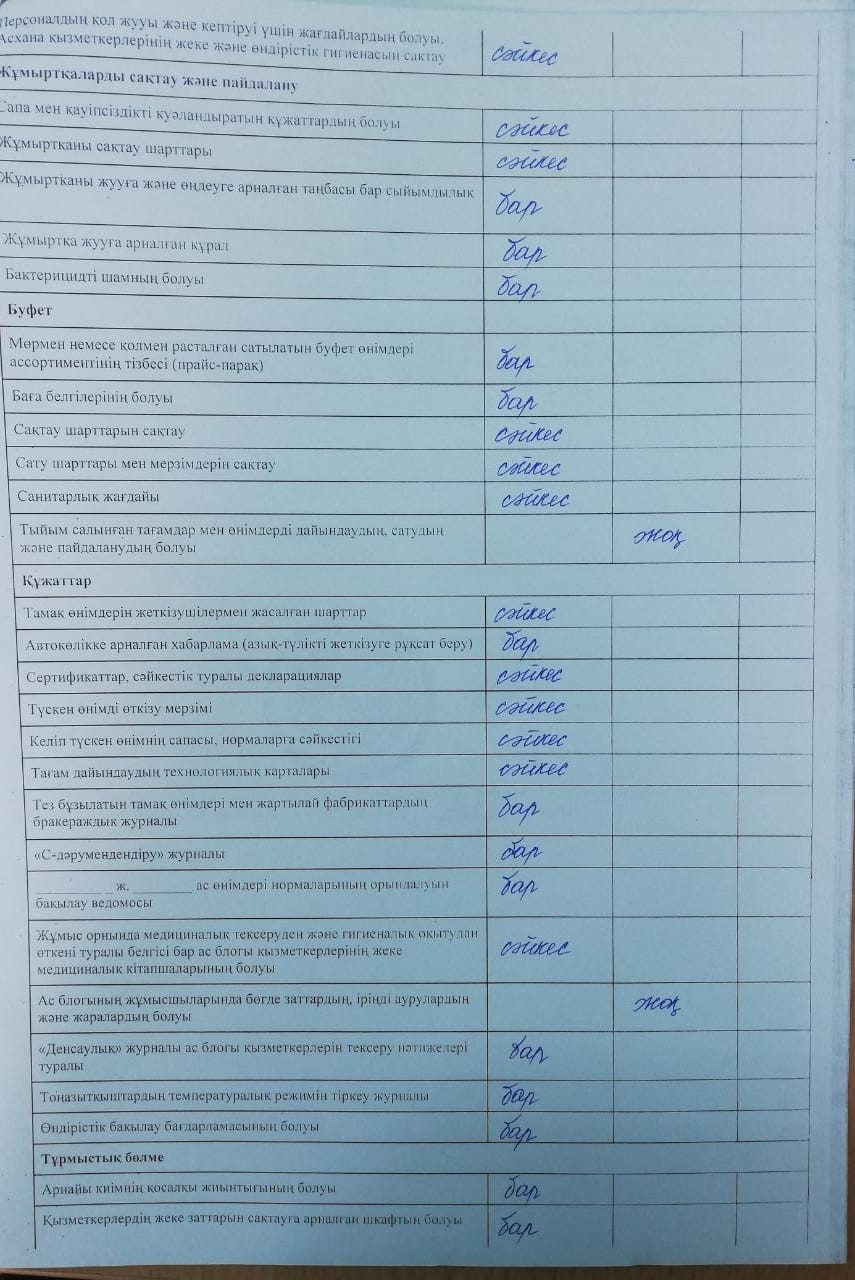 Персоналдың қол жууы және кептіруі үшін жағдайлардың болуы.
Асхана қызметкерлерінің жеке және өндірістік гигиенасын сақтау сәйкес
Жұмыртқаларды сақтау және пайдалану
Сапа мен қауіпсіздікті куәландыратын құжаттардың болуы сәйкес
Жұмыртқаны сақтау шарттары сәйкес
Жұмыртқаны жууға және өңдеуге арналған таңбасы бар сыйымдылық бар
Жұмыртқа жууға арналған құрал бар
Бактерицидті шамның болуы бар
Буфет
Мөрмен немесе қолмен расталған сатылатын буфет өнімдері
ассортиментінің тізбесі (прайс-парақ) бар
Баға белгілерінің болуы бар
Сақтау шарттарын сақтау сәйкес
Сату шарттары мен мерзімдерін сақтау сәйкес
Санитарлық жағдайы сәйкес
Тыйым салынған тағамдар мен өнімдерді дайындаудың, сатудың
және пайдаланудың болуы жоқ
Құжаттар
Тамақ өнімдерін жеткізушілермен жасалған шарттар сәйкес
Автокөлікке арналған хабарлама (азық-түлікті жеткізуге рұқсат беру) бар
Сертификаттар, сәйкестік туралы декларациялар сәйкес
Түскен өнімді өткізу мерзімі сәйкес
Келіп түскен өнімнің сапасы, нормаларға сәйкестігі сәйкес
Тағам дайындаудың технологиялық карталары сәйкес
Тез бұзылатын тамақ өнімдері мен жартылай фабрикаттардың
бракераждық журналы бар
«С-дәрумендендіру» журналы бар
__________ ж. ________ ас өнімдері нормаларының орындалуын
бақылау ведомосы бар
Жұмыс орнында медициналық тексеруден және гигиеналық оқытудан
өткені туралы белгісі бар ас блогы қызметкерлерінің жеке сәйкес
медициналық кітапшаларының болуы
Ас блогының жұмысшыларында бөгде заттардың, іріңді аурулардың
және жаралардың болуы жоқ
«Денсаулық» журналы ас блогы қызметкерлерін тексеру нәтижелері
туралы бар
Тоңазытқыштардың температуралық режимін тіркеу журналы бар
Өндірістік бақылау бағдарламасының болуы бар
Тұрмыстық бөлме
Арнайы киімнің қосалқы жиынтығының болуы бар
Қызметкерлердің жеке заттарын сақтауға арналған шкафтың болуы бар